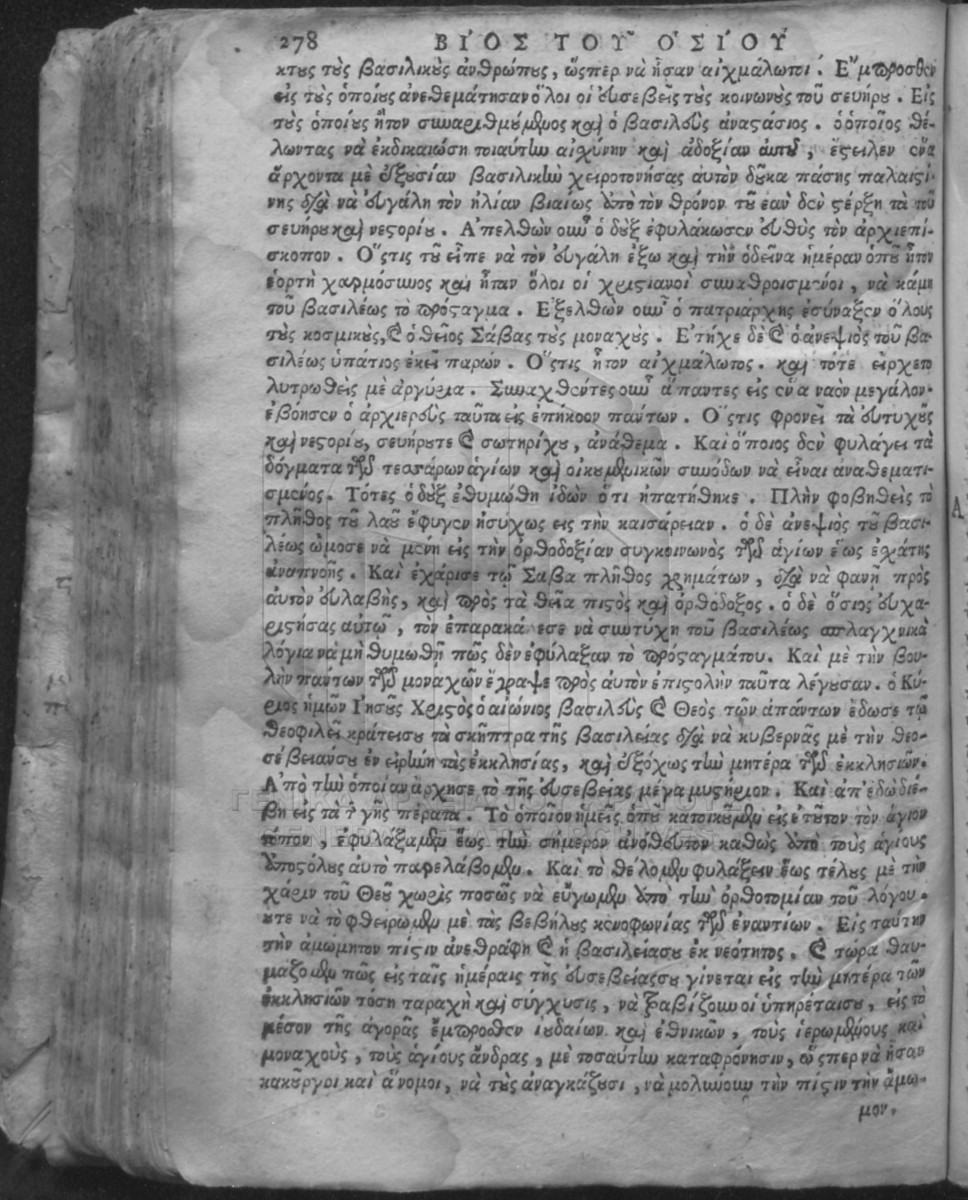 278 ΒΙΟΣ ΤΟΥ ὉΣΙΟΥ
κτους τοὺς βασιλικοὺς ἀνθρώπους, ὥσπερ νὰ ἦσαν αἰχμάλωτοι. Ἔμπροσθεν
εἰς τοὺς ὁποίους ἀνεθεμάτησαν ὅλοι οἱ εὐσεβεῖς τοὺς κοινωνοὺς τοῦ σευήρου. Εἰς
τοὺς ὁποίους ἦτον συναριθμούμενος καὶ ὁ βασιλεὺς ἀναστάσιος. ὁ ὁποῖος θέ-
λωντας νὰ ἐκδικαιώση τοιαύτην αἰχύνην καὶ ἀδοξίαν αὐτοῦ, ἔστειλεν ἕνα
ἄρχοντα μὲ ἐξουσίαν βασιλικὴν χειροτονήσας αὐτὸν δοῦκα πάσης παλαιστί-
νης διὰ νὰ εὐγάλη τὸν ἠλίαν βιαίως ἀπὸ τὸν θρόνον του ἐὰν δὲν στέρξη τὰ τοῦ
σευήρου καὶ νεστορίου. Ἀπελθὼν οὖν ὁ δοὺξ ἐφυλάκωσεν εὐθὺς τὸν ἀρχιεπί-
σκοπον. Ὅστις τοῦ εἶπε νὰ τὸν εὐγάλη ἔξω καὶ τὴν ὁδεῖνα ἡμέραν ὁποῦ ἦτον
ἑορτὴ χαρμόσυνος καὶ ἦταν ὅλοι οἱ χριστιανοὶ συναθροισμένοι, νὰ κάμη
τοῦ βασιλέως τὸ πρόσταγμα. Ἐξελθὼν οὖν ὁ πατριάρχης ἐσύναξεν ὅλους
τοὺς κοσμικοὺς, καὶ ὁ θεῖος Σάβας τοὺς μοναχούς. Ἔτηχε δὲ καὶ ὁ ἀνεψιὸς τοῦ βα-
σιλέως ὑπάτιος ἐκεῖ παρών. Ὅστις ἦτον αἰχμάλωτος. καὶ τότε εἰρχετο
λυτρωθεὶς μὲ ἀργύρια. Συναχθέντες οὖν ἅπαντες εἰς ἕνα ναὸν μεγάλον.
ἐβόησεν ὁ ἀρχιερεὺς ταῦτα εἰς ἐπήκοον πάντων. Ὅστις φρονεῖ τὰ εὐτυχοῦς
καὶ νεστορίου, σευήρουτε καὶ σωτηρίχου, ἀνάθεμα. Καὶ ὅποιος δὲν φυλάγει τὰ
δόγματα τῶν τεσσάρων ἁγίων καὶ οἰκουμενικῶν συνόδων νὰ εἶναι ἀναθεματι-
σμένος. Τότες ὁ δοὺξ ἐθυμώθη ἰδὼν ὅτι ἠπατήθηκε. Πλὴν φοβηθεὶς τὸ
πλῆθος τοῦ λαοῦ ἔφυγεν ἡσύχως εις τὴν καισάρειαν. ὁ δὲ ἀνεψιὸς τοῦ βασι-
λέως ὤμοσε νὰ μένη εἰς τὴν ὀρθοδοξίαν συγκοινωνὸς τῶν ἁγίων ἕως ἐχάτης
ἀναπνοῆς. Καὶ ἐχάρισε τῷ Σαβα πλῆθος χρημάτων, διὰ νὰ φανῇ πρὸς
αὐτὸν εὐλαβὴς, καὶ πρὸς τὰ θεῖα πιστὸς καὶ ὀρθόδοξος. ὁ δὲ ὅσιος εὐχα-
ριστήσας αὐτῷ, τὸν ἐπαρακάλεσε νὰ συντύχη τοῦ βασιλέως σπλαγχνικὰ
λόγια να μὴ θυμωθῇ πῶς δὲν ἐφύλαξαν τὸ πρόσταγμάτου. Καὶ μὲ τὴν βου-
λὴν πάντων τῶν μοναχῶν ἔγραψε πρὸς αὐτὸν ἐπιστολὴν ταῦτα λέγουσαν. ὁ Κύ-
ριος ἡμῶν Ἰησοῦς Χριστὸς ὁ αἰώνιος βασιλεὺς καὶ Θεὸς τῶν ἁπάντων ἔδωσε τῷ
θεοφιλεῖ κράτεισου τὰ σκῆπτρα τῆς βασιλείας διὰ νὰ κυβερνᾷς μὲ τὴν θεο-
σέβειάνσου ἐν εἰρήνη τὰς ἐκκλησίας, καὶ ἐξόχως τὴν μητέρα τῶν ἐκκλησιῶν.
Ἀπὸ τὴν ὁποίαν ἄρχησε τὸ τῆς εὐσεβείας μέγα μυστήριον. Καὶ ἀπ' ἐδὼ διέ-
βη εἰς τὰ τῆς γῆς πέρατα. Τὸ ὁποῖον ἡμεῖς ὁποῦ κατοικοῦμεν εἰς ἐτοῦτον τὸν ἅγιον
τόπον, ἐφυλάξαμεν ἕως τὴν σήμερον ἀνόθευτον καθὼς ἀπὸ τοὺς ἁγίους
ἀποστόλους αὐτὸ παρελάβομεν. Καὶ τὸ θέλομεν φυλάξειν ἕως τέλους μὲ τὴν
χάριν τοῦ Θεοῦ χωρὶς ποσῶς νὰ εὔγωμεν ἀπὸ τὴν ὀρθοτομίαν τοῦ λόγου.
ουτε νὰ τὸ φθείρωμεν μὲ τὰς βεβήλους κενοφωνίας τῶν ἐναντίων. Εἰς ταύτην
τὴν ἀμώμητον πίστιν ἀνεθράφη καὶ ἡ βασιλείασου ἐκ νεότητος. καὶ τώρα θαυ-
μάζομεν πῶς εἰς ταῖς ἡμέραις τῆς εὐσεβείαςσου γίνεται εἰς τὴν μητέρα τῶν
ἐκκλησιῶν τόση ταραχὴ καὶ σύγχυσις, νὰ τραβίζουν οἱ ὑπηρέταισου, εἰς τὸ
μέσον τῆς ἀγορᾶς ἔμπροσθεν ἰουδαίων καὶ ἐθνικῶν, τοὺς ἱερωμένους καὶ
μοναχοὺς, τοὺς ἁγίους ἄνδρας, μὲ τοσαύτην καταφρόνησιν, ὥσπερ νὰ ἦσαν
κακοῦργοι καὶ ἄνομοι, νὰ τοὺς ἀναγκάζουσι, νὰ μολύνουν τὴν πίστιν τὴν ἄμω-
μον.
ΓΕΝΙΚΑ ΑΡΧΕΙΑ ΤΟΥ ΚΡΑΤΟΥΣ
GENERAL STATE ARCHIVES